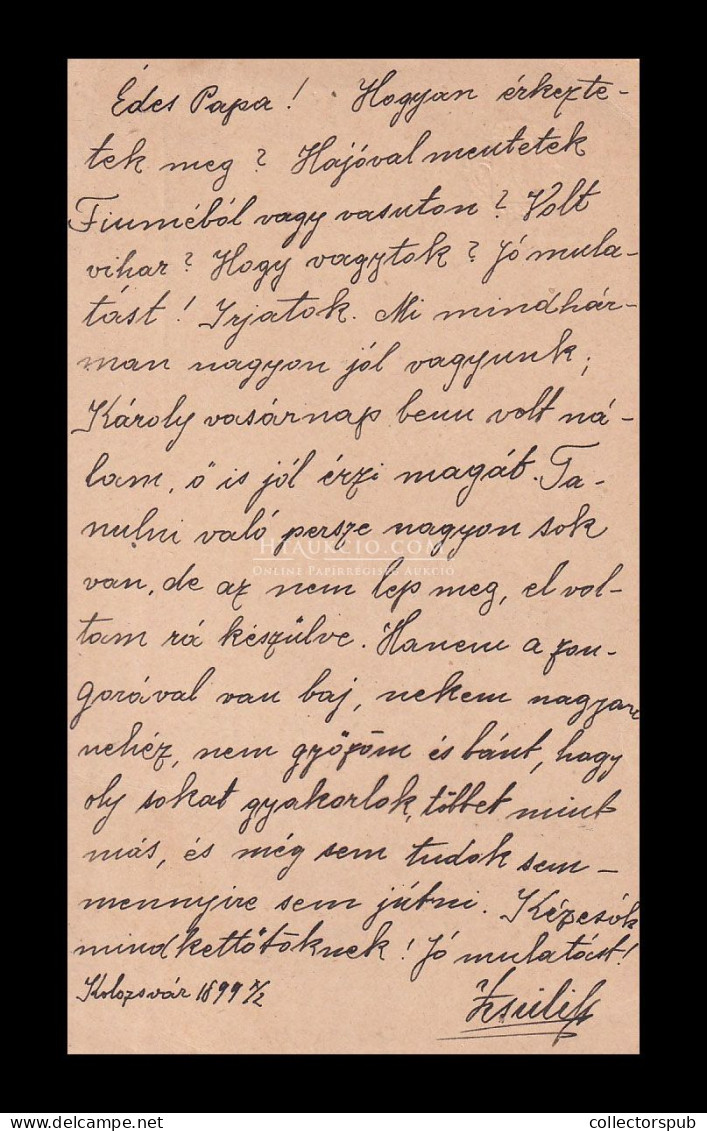 Édes Papa! Hogyan érkezte-
tek meg? Hajóval mentetek
Fiuméból vagy vasuton? Volt
vihar? Hogy vagytok? Jó mula-
tást! Irjatok. Mi mindhár-
man nagyon jól vagyunk;
Károly vasárnap benn volt ná-
lam, ő is jól érzi magát. Ta-
nulni való persze nagyon sok
van, de az nem lep meg, el vol-
tam rá készülve. Hanem a zon-
gorával van baj, nekem nagyon
nehéz, nem győzöm és bánt, hogy
oly sokat gyakorlok, többet mint
más, és még sem tudok sem-
mennyire sem jutni. Kézcsók
mindkettőtöknek! Jó mulatást!
Kolozsvár 1899 /2
HTAUKCIO.COM
ONLINE PAPÍRRÉGISÉG AUKCIÓ
collectorspub